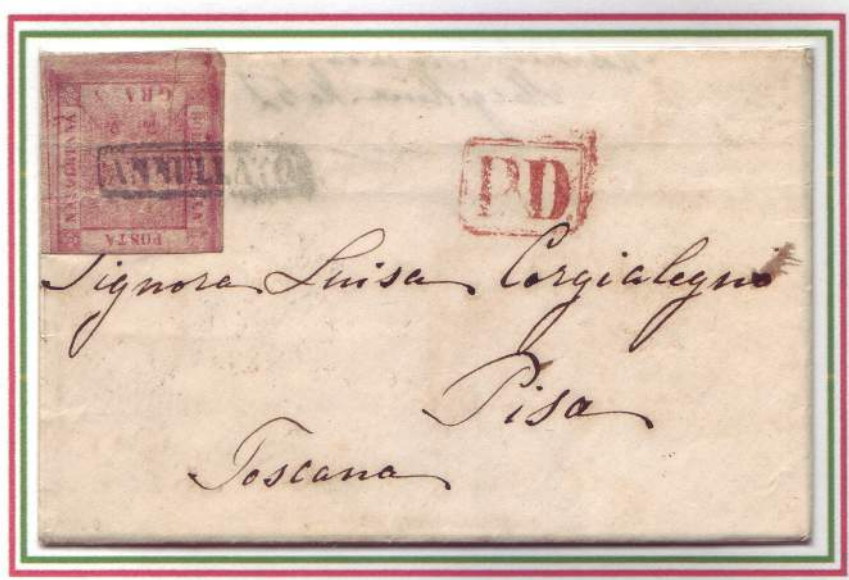 GRA
POSTA
ANNULLATO
PD
Signora Luisa Corgialegno
Pisa
Toscana